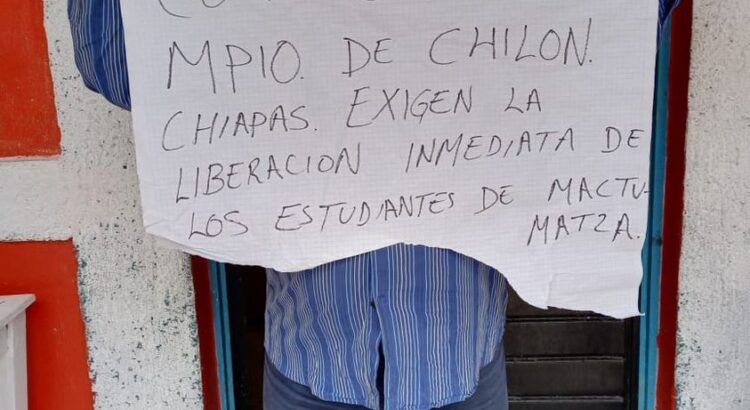 MPIO. DE CHILON.
CHIAPAS. EXIGEN LA
LIBERACION INMEDIATA DE
LOS ESTUDIANTES DE MACTU-
MATZA.